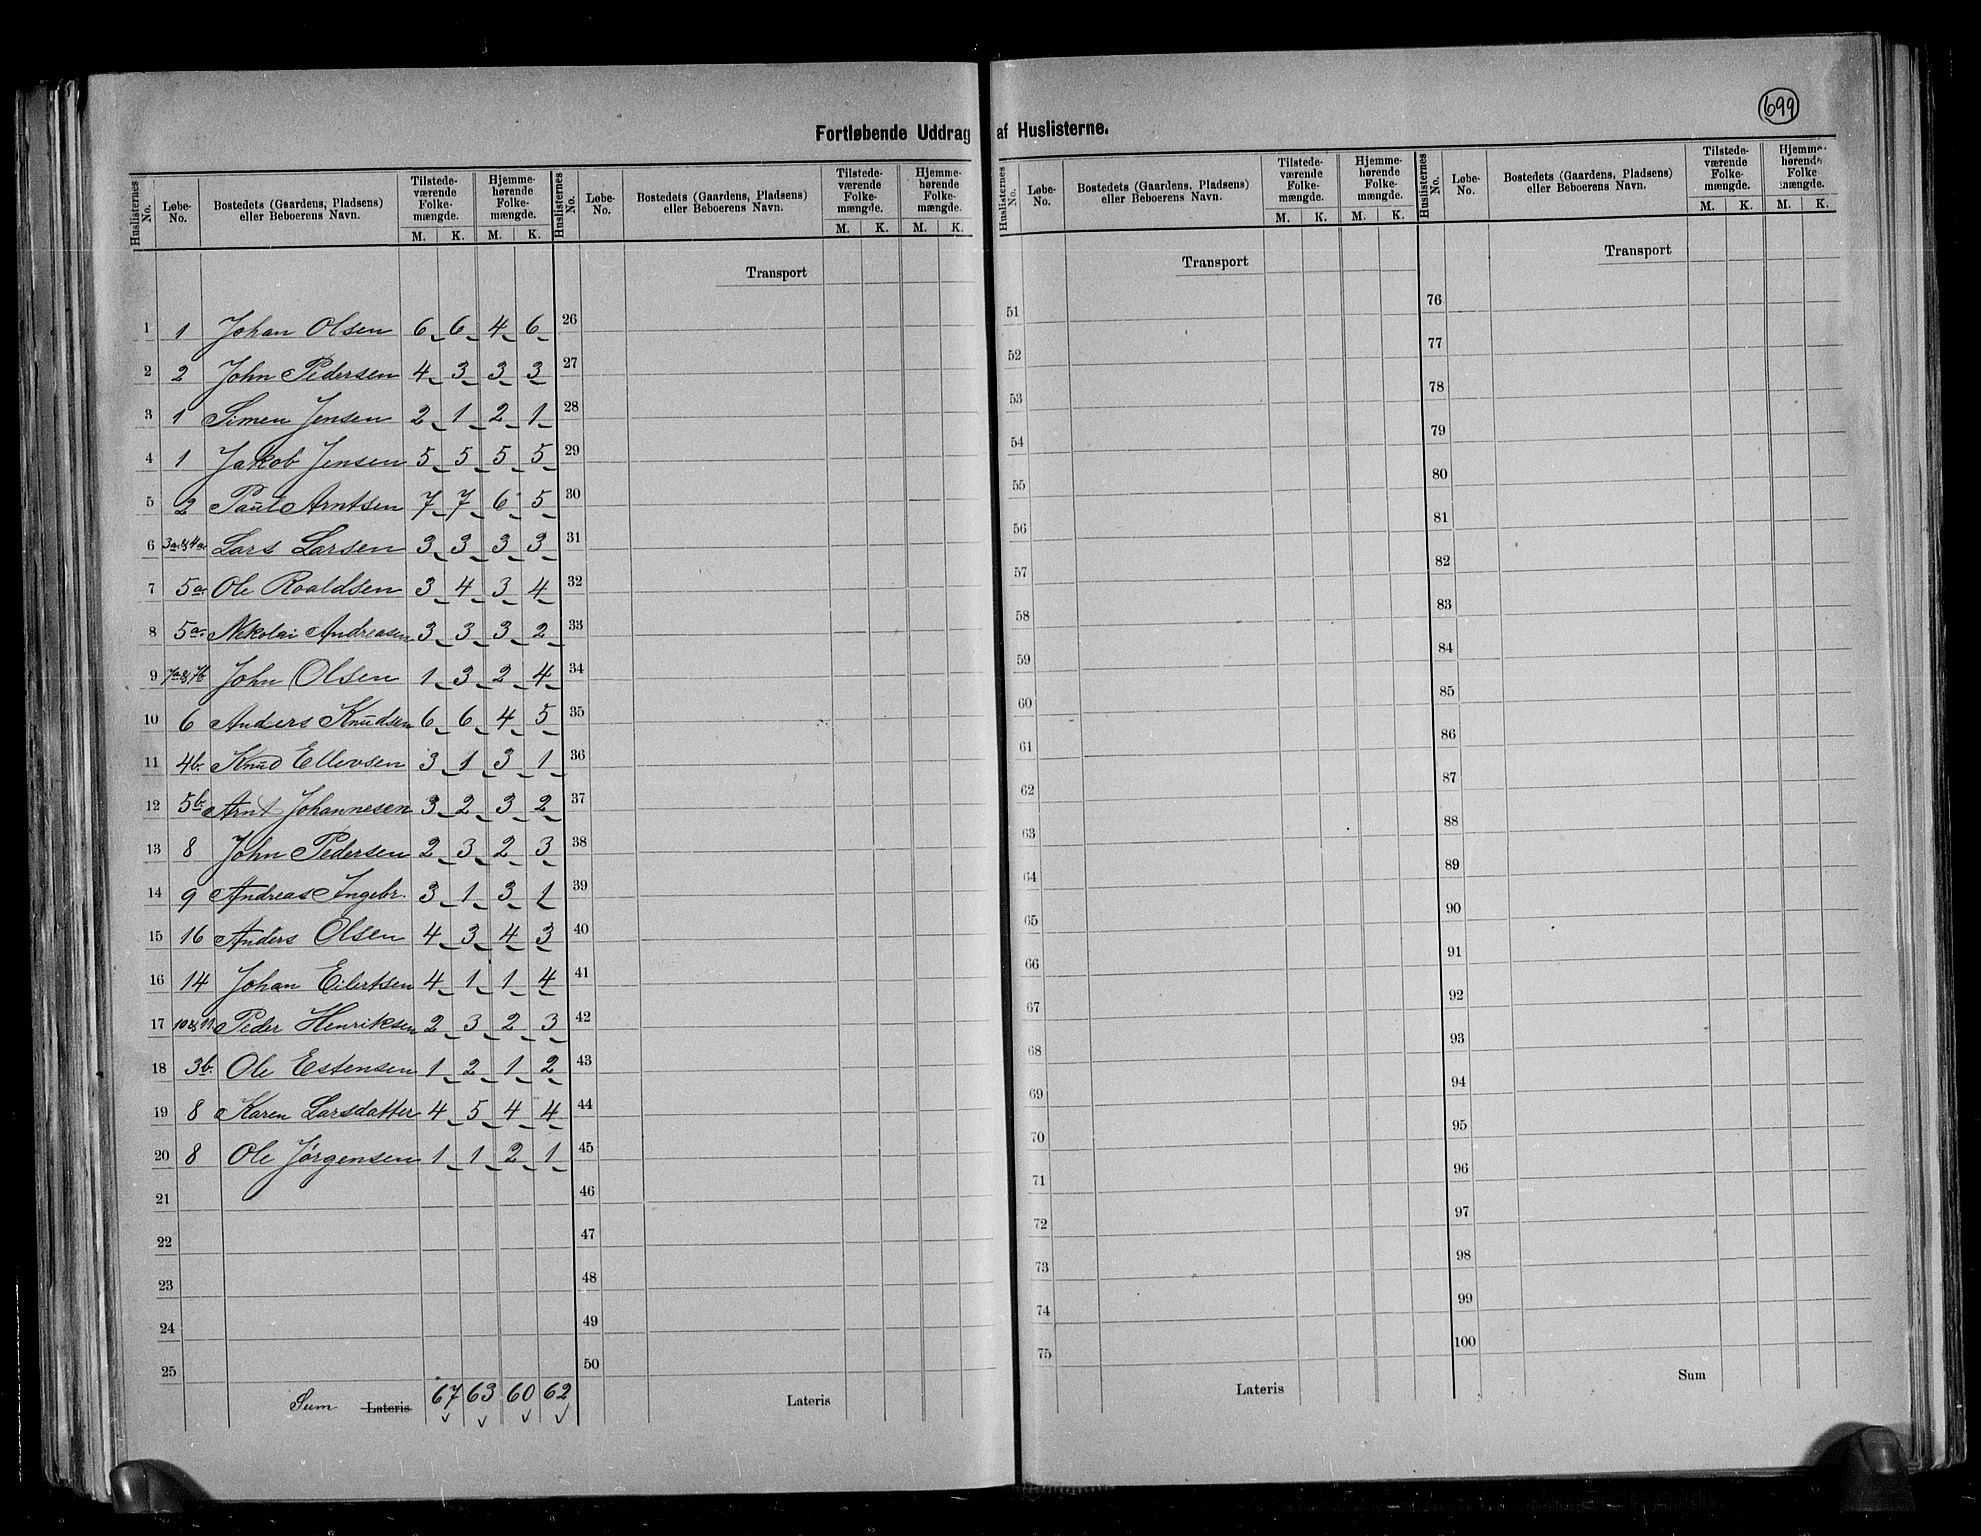 699
Fortløbende Uddrag af Huslisterne.
Huslisternes No. Løbe-No. Bostedets (Gaardens, Pladsens) eller Beboerens Navn. Tilstede-værende Folke-mængde. M. K. Hjemme-hørende Folke-mængde. M. K.
Huslisternes No. Løbe-No. Bostedets (Gaardens, Pladsens) eller Beboerens Navn. Tilstede-værende Folke-mængde. M. K. Hjemme-hørende Folke-mængde. M. K.
Huslisternes No. Løbe-No. Bostedets (Gaardens, Pladsens) eller Beboerens Navn. Tilstede-værende Folke-mængde. M. K. Hjemme-hørende Folke-mængde. M. K.
Huslisternes No. Løbe-No. Bostedets (Gaardens, Pladsens) eller Beboerens Navn. Tilstede-værende Folke-mængde. M. K. Hjemme-hørende Folke-mængde. M. K.
Transport Transport Transport
1 1 Johan Olsen 6 6 4 6 26 51 76
2 2 John Pedersen 4 3 3 3 27 52 77
3 1 Simen Jensen 2 1 2 1 28 53 78
4 1 Jakob Jensen 5 5 5 5 29 54 79
5 2 Paul Arntsen 7 7 6 5 30 55 80
6 3a & 4a Lars Larsen 3 3 3 3 31 56 81
7 5a Ole Roaldsen 3 4 3 4 32 57 82
8 5a Nekolai Andreasen 3 3 3 2 33 58 83
9 7a & 7b John Olsen 1 3 2 4 34 59 84
10 6 Anders Knudsen 6 6 4 5 35 60 85
11 4b. Knud Ellevsen 3 1 3 1 36 61 86
12 5b Arnt Johannesen 3 2 3 2 37 62 87
13 8 John Pedersen 2 3 2 3 38 63 88
14 9 Andreas Ingebr. 3 1 3 1 39 64 89
15 16 Anders Olsen 4 3 4 3 40 65 90
16 14 Johan Eilertsen 4 1 1 4 41 66 91
17 10 & 11 Peder Henriksen 2 3 2 3 42 67 92
18 3b. Ole Estensen 1 2 1 2 43 68 93
19 8 Karen Larsdatter 4 5 4 4 44 69 94
20 8 Ole Jørgensen 1 1 2 1 45 70 95
21 46 71 96
22 47 72 97
23 48 73 98
24 49 74 99
25 50 75 100
Sum Lateris 67 63 60 62 Lateris Lateris Sum